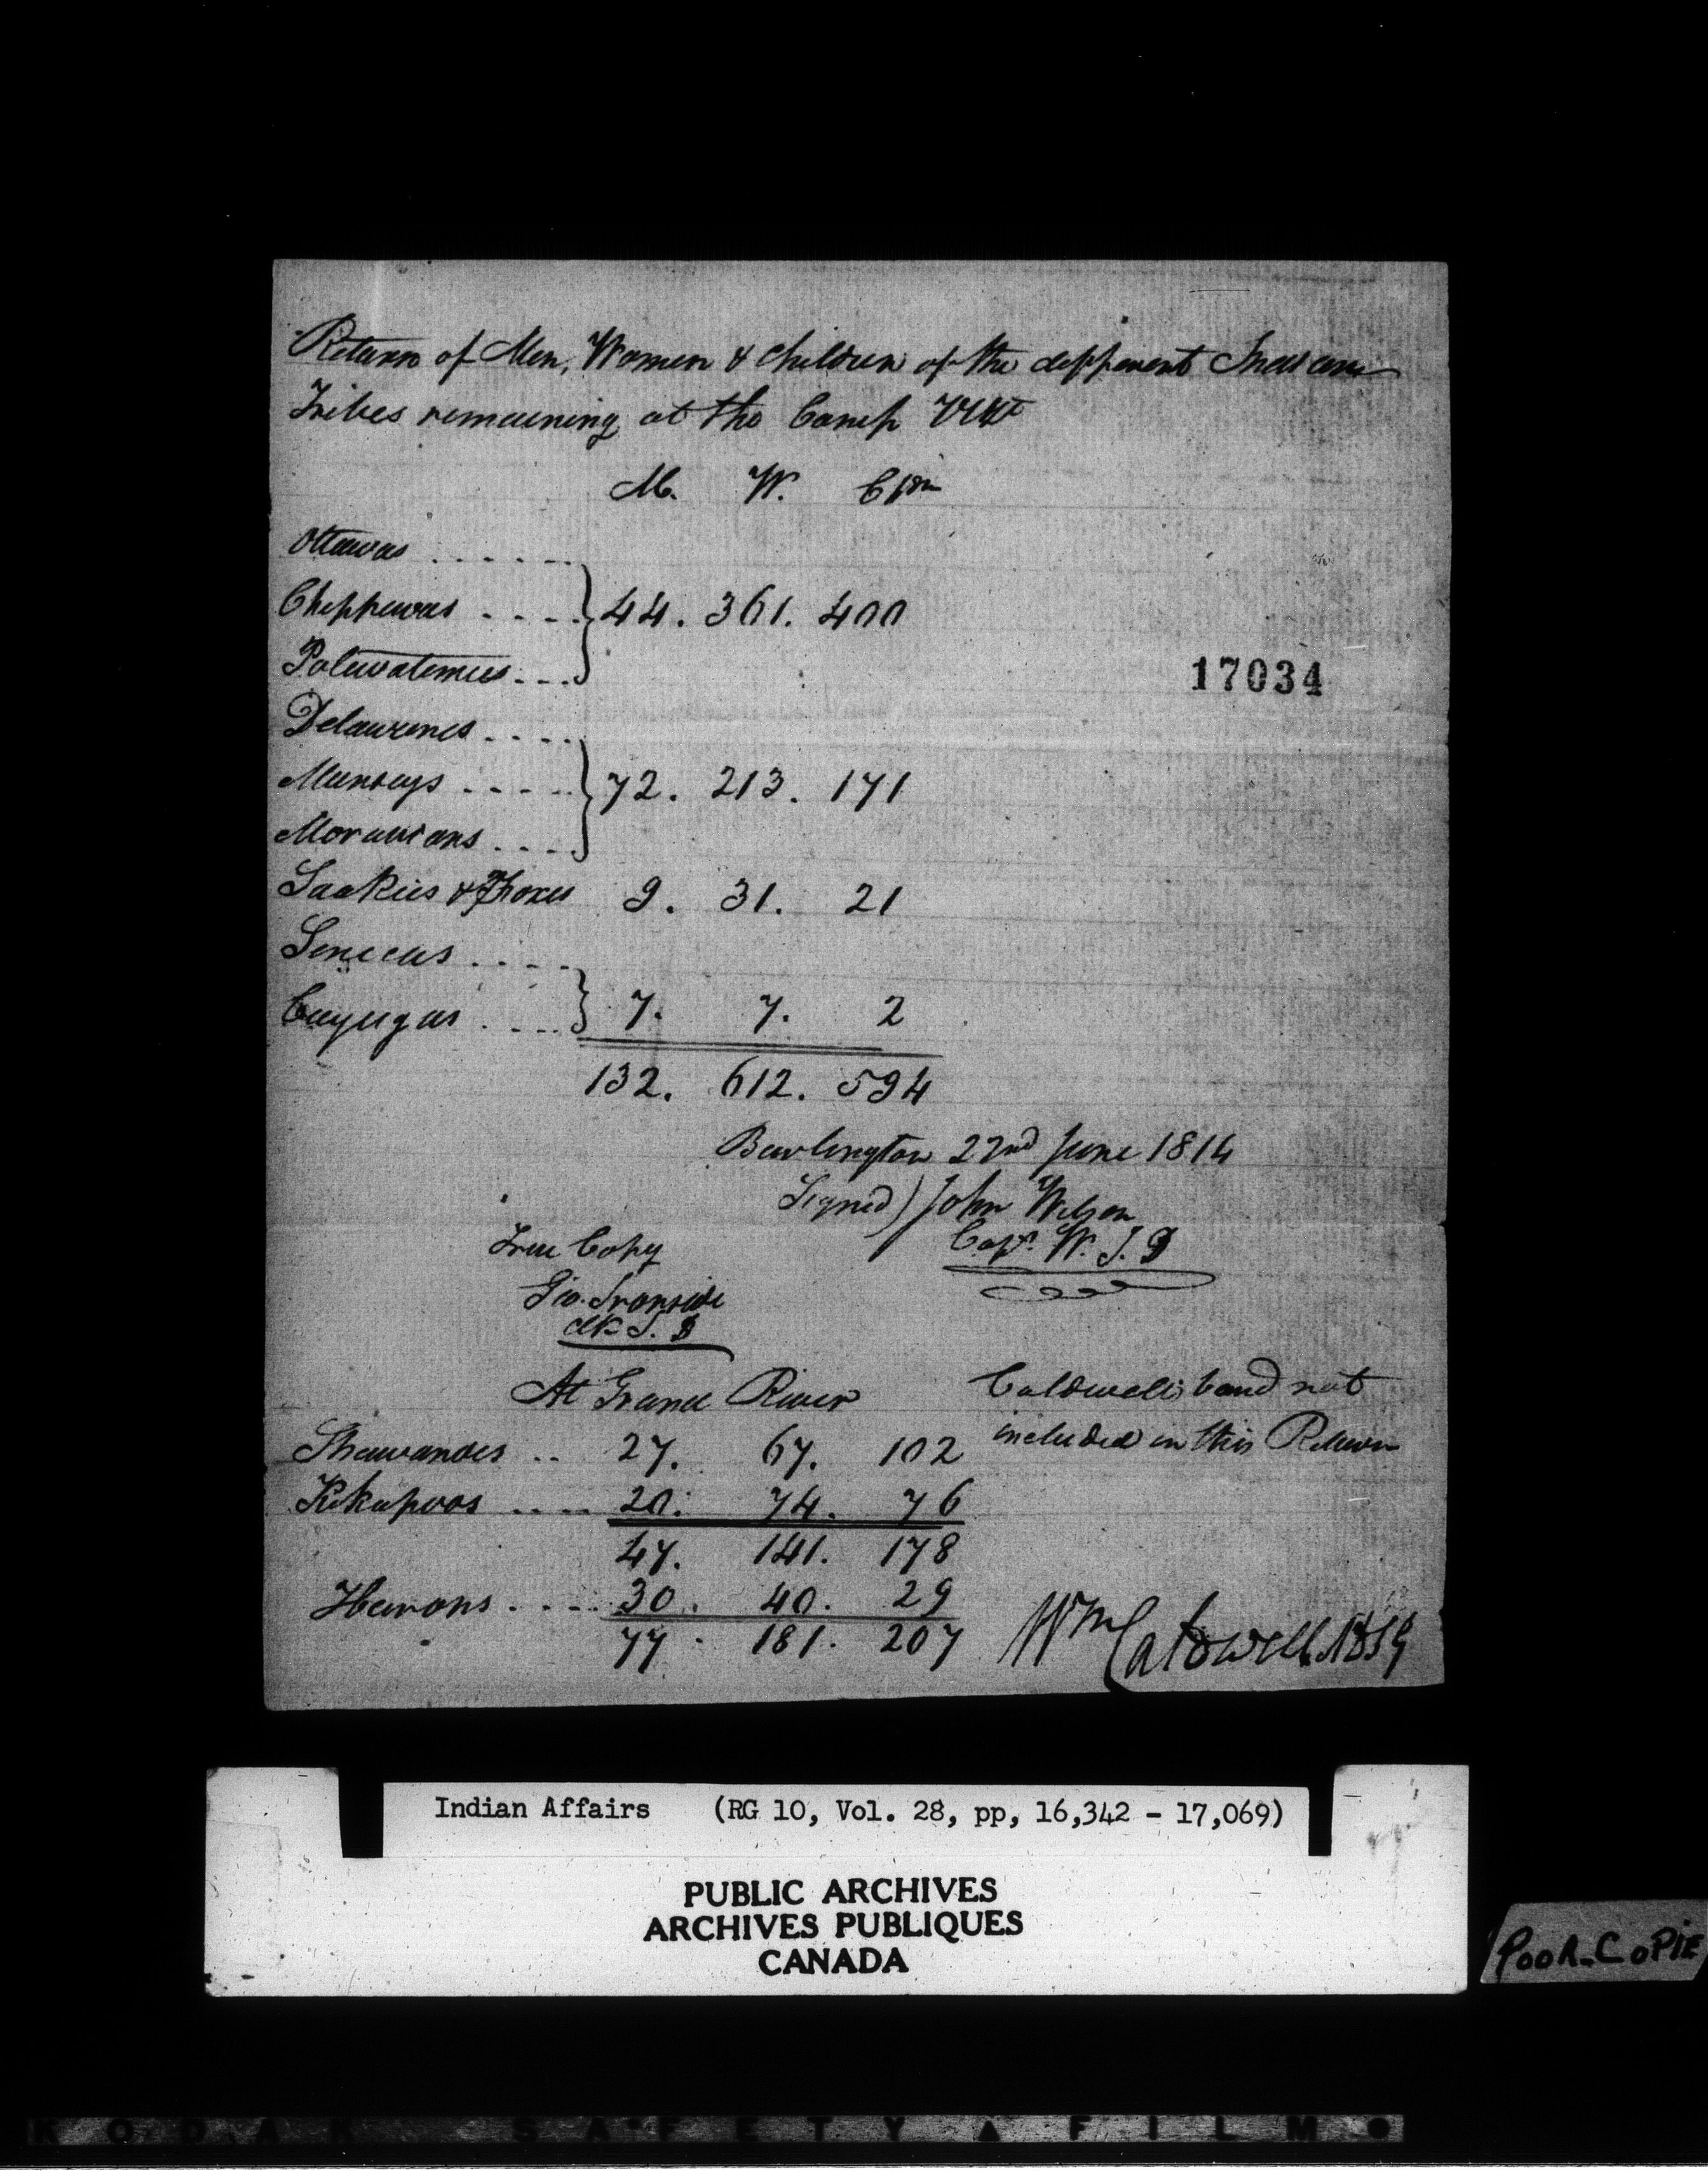 Return of Men, Women & Children of the different Indian
Tribes remaining at the Camp Vizt
M. W. Chn
Ottawas ......
Chippewas .... } 44. 361. 400
Potewatemies....
17034
Delawares ....
Munseys ..... } 72. 213. 171
Moravians ....
Saakies & Fhoxes 9. 31. 21
Senecas .....
Cayugas .... } 7. 7. 2
132. 612. 594
Burlington 22nd June 1814
Signed) John Wilson
Capt. W. I. D
True Copy
Geo. Ironside
clk I. D
At Grand River
Caldwells band not
included in this Return
Shawanoes .. 27. 67. 102
Kikapoos .... 20. 74. 76
47. 141. 178
Hurons ..... 30. 40. 29
77. 181. 207
Wm Caldwell
Indian Affairs (RG 10, Vol. 28, pp, 16,342 - 17,069)
PUBLIC ARCHIVES
ARCHIVES PUBLIQUES
CANADA
POOR_COPIE
KODAK SAFETY FILM